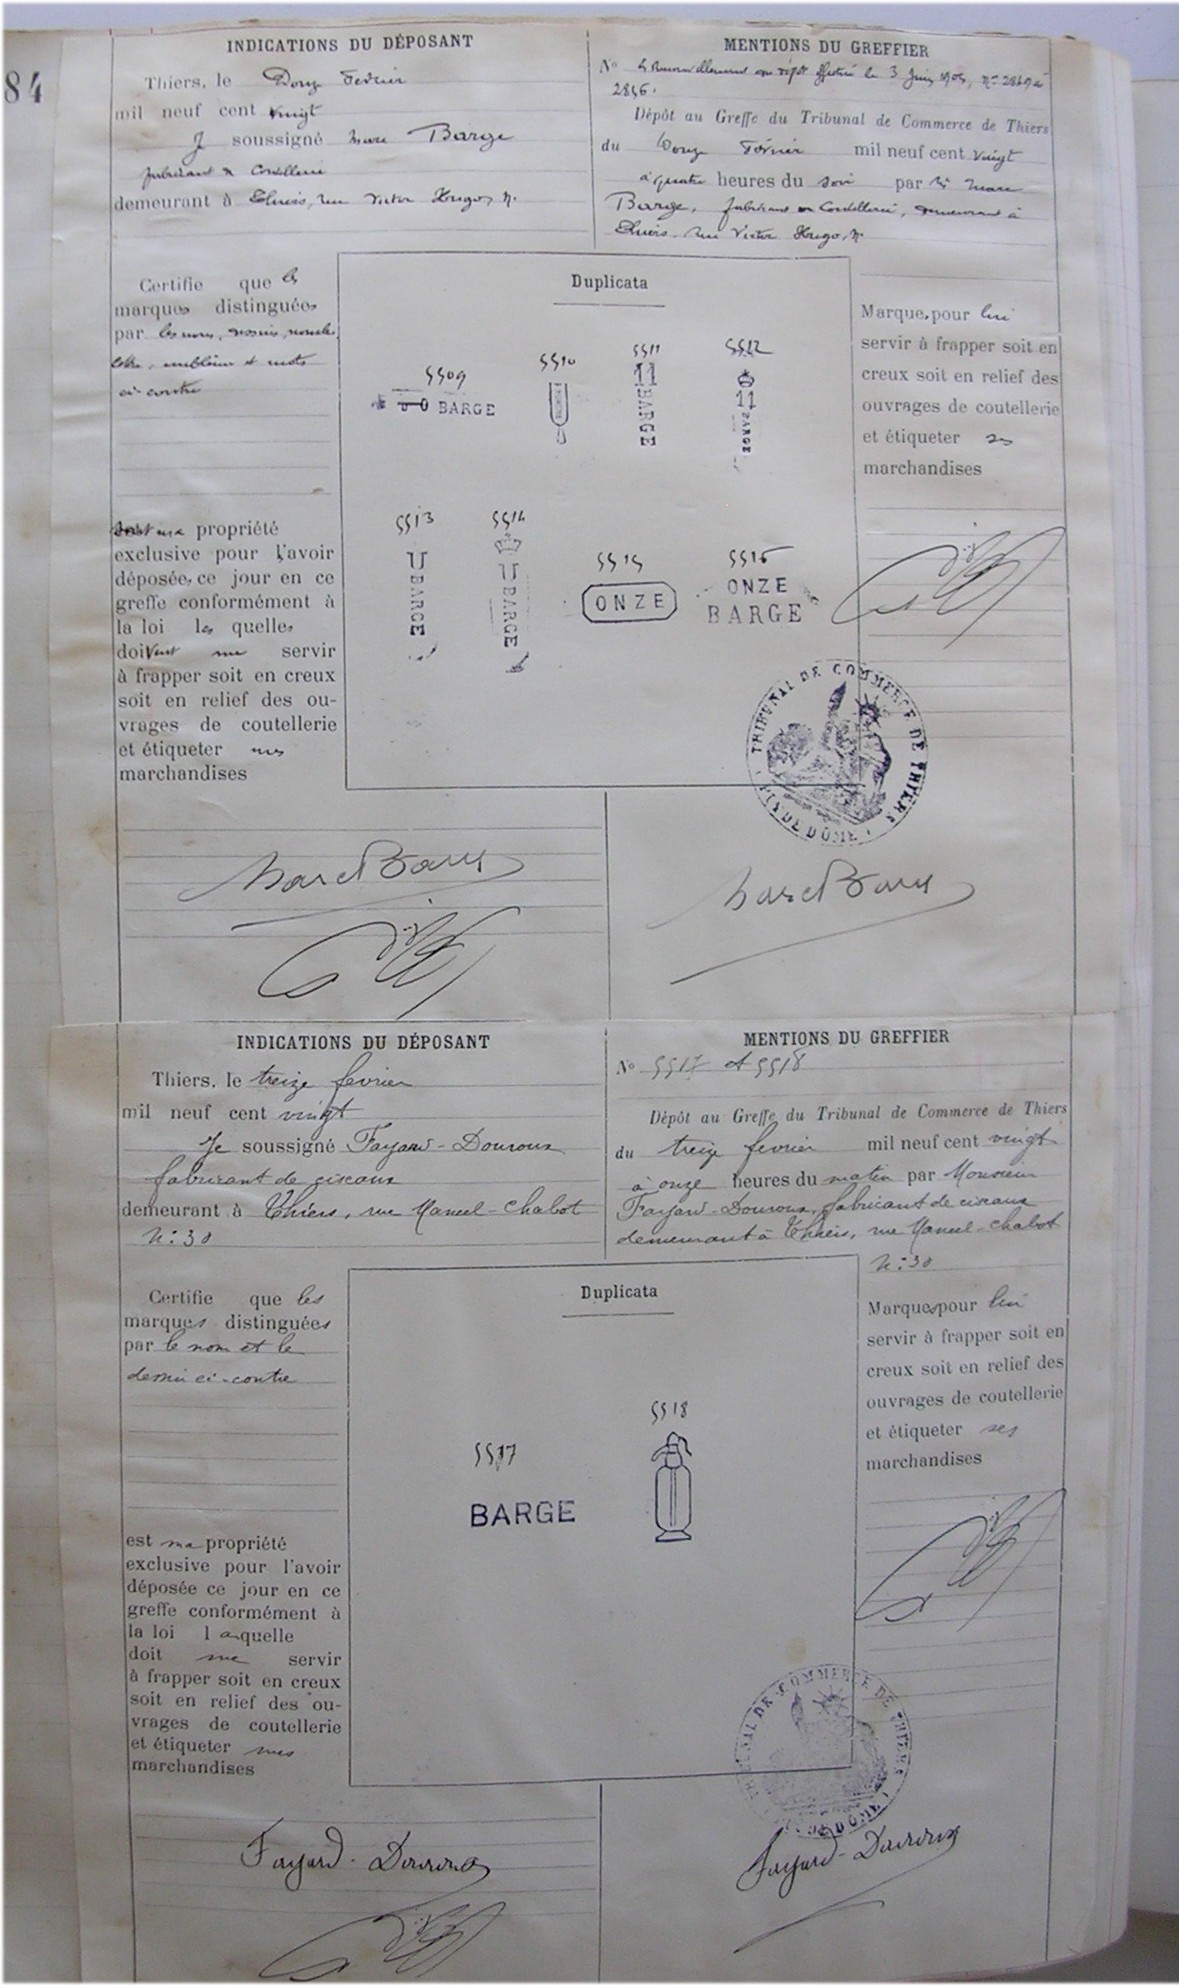 84
INDICATIONS DU DÉPOSANT
Thiers, le Douze Fevrier
mil neuf cent vingt
Je soussigné Marc Barge
fabricant de Coutellerie
demeurant à Thiers, rue Victor Hugo, N.
Certifie que les
marques distinguées
par les noms, dessins,
emblème et mots
ci-contre
sont ma propriété
exclusive pour l'avoir
déposée, ce jour en ce
greffe conformément à
la loi les quelles
doivent me servir
à frapper soit en creux
soit en relief des ou-
vrages de coutellerie
et étiqueter mes
marchandises
MENTIONS DU GREFFIER
No effectué le 3 Juin
Dépôt au Greffe du Tribunal de Commerce de Thiers
du Douze Février mil neuf cent vingt
à quatre heures du soir par Mr Marc
Barge, fabricant en Coutellerie, demeurant à
Thiers, rue Victor Hugo, N.
Duplicata
5509
BARGE
5510
5511
11 BARGE
5512
11 BARGE
5513
U BARGE
5514
U BARGE
5515
ONZE
5516
ONZE
BARGE
Marques pour lui
servir à frapper soit en
creux soit en relief des
ouvrages de coutellerie
et étiqueter ses
marchandises
TRIBUNAL DE COMMERCE DE THIERS
PUY DE DÔME
Marc Barge
Marc Barge
INDICATIONS DU DÉPOSANT
Thiers, le treize fevrier
mil neuf cent vingt
Je soussigné Fayard-Douroux
fabricant de ciseaux
demeurant à Thiers, rue Mancel-Chabot
N: 30
Certifie que les
marques distinguées
par le nom et le
dessin ci-contre
est ma propriété
exclusive pour l'avoir
déposée ce jour en ce
greffe conformément à
la loi laquelle
doit me servir
à frapper soit en creux
soit en relief des ou-
vrages de coutellerie
et étiqueter mes
marchandises
MENTIONS DU GREFFIER
No 5517 et 5518
Dépôt au Greffe du Tribunal de Commerce de Thiers
du treize fevrier mil neuf cent vingt
à onze heures du matin par Monsieur
Fayard-Douroux, fabricant de ciseaux
demeurant à Thiers, rue Mancel-Chabot
N: 30
Duplicata
5517
BARGE
5518
Marques pour lui
servir à frapper soit en
creux soit en relief des
ouvrages de coutellerie
et étiqueter ses
marchandises
TRIBUNAL DE COMMERCE DE THIERS
PUY DE DÔME
Fayard-Douroux
Fayard-Douroux